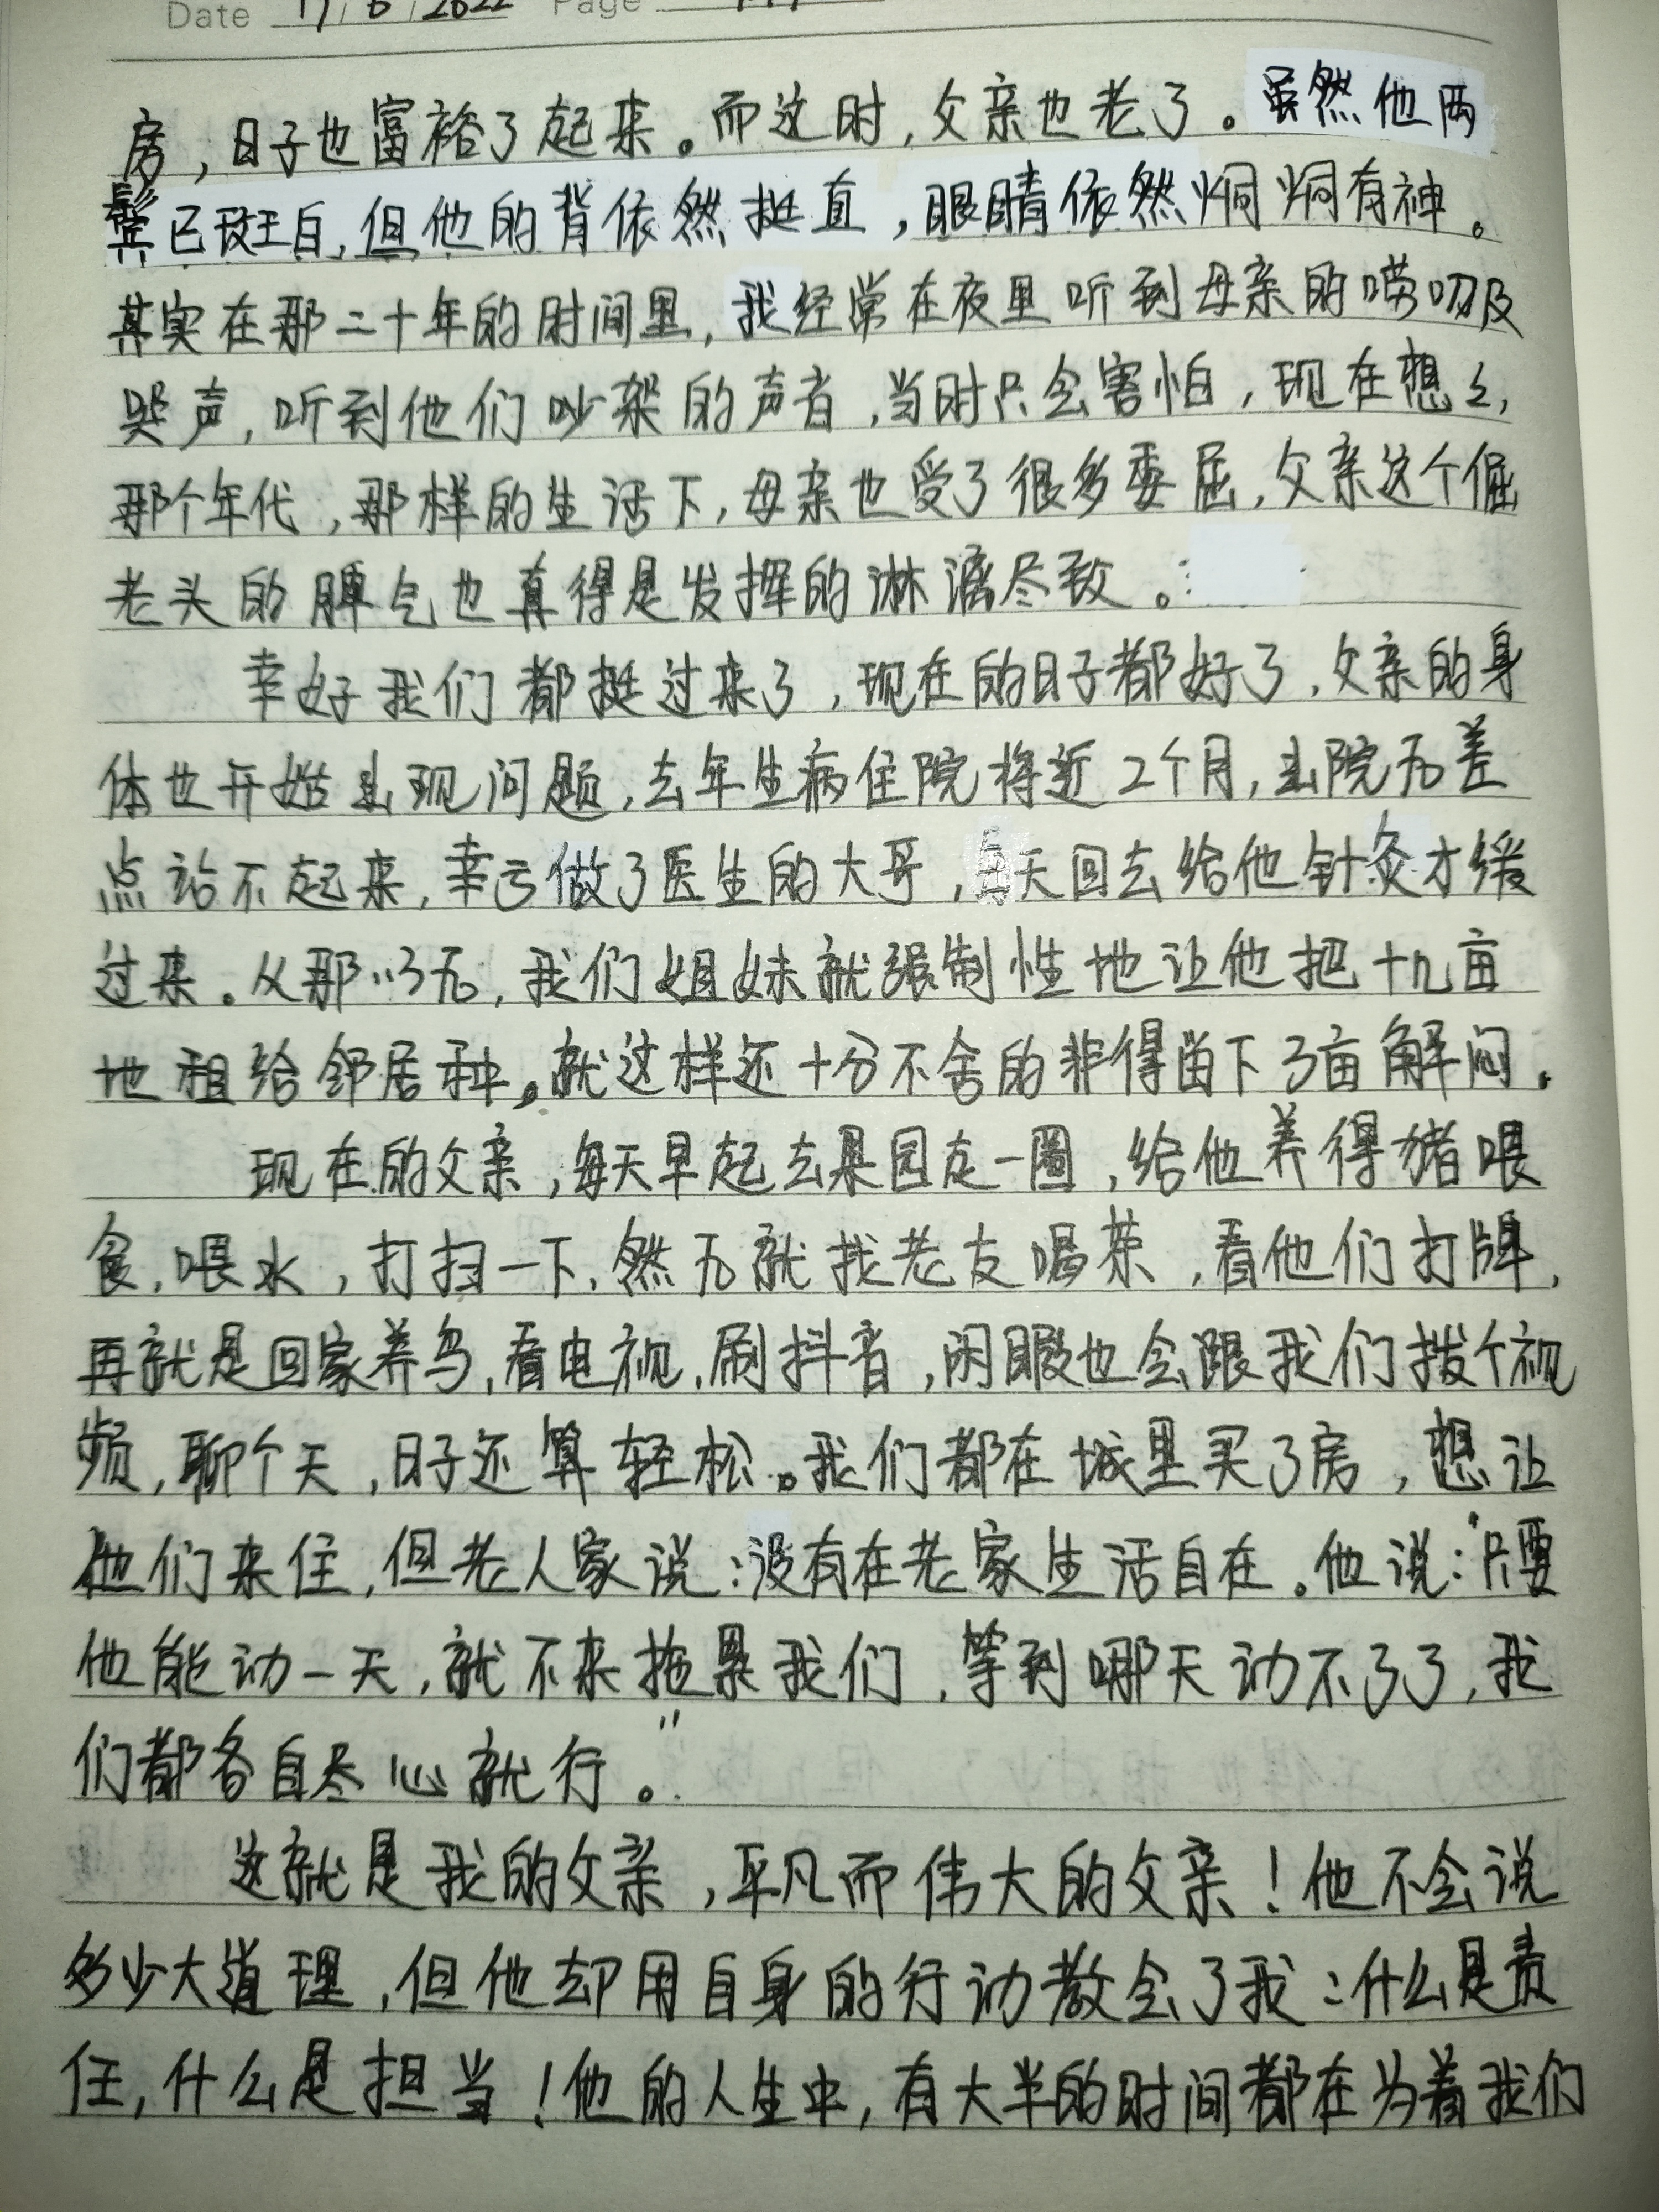 Date 17/6/2022 Page
房，日子也富裕了起来。而这时，父亲也老了。虽然他两
鬓已斑白，但他的背依然挺直，眼睛依然炯炯有神。
其实在那二十年的时间里，我经常在夜里听到母亲的唠叨及
哭声，听到他们吵架的声音，当时只会害怕，现在想之，
那个年代，那样的生活下，母亲也受了很多委屈，父亲这个倔
老头的脾气也真得是发挥的淋漓尽致。
幸好我们都挺过来了，现在的日子都好了，父亲的身
体也开始出现问题，去年生病住院将近2个月，出院后差
点站不起来，幸亏做了医生的大哥，每天回去给他针灸才缓
过来。从那以后，我们姐妹就强制性地让他把十几亩
地租给邻居种。就这样还十分不舍的非得留下3亩解闷。
现在的父亲，每天早起去果园走一圈，给他养得猪喂
食，喂水，打扫一下，然后就找老友喝茶，看他们打牌，
再就是回家养鸟，看电视，刷抖音，闲暇也会跟我们拨个视
频，聊个天，日子还算轻松。我们都在城里买了房，想让
他们来住，但老人家说：没有在老家生活自在。他说：“只要
他能动一天，就不来拖累我们，等到哪天动不了了，我
们都各自尽心就行。”
这就是我的父亲，平凡而伟大的父亲！他不会说
多少大道理，但他却用自身的行动教会了我：什么是责
任，什么是担当！他的人生中，有大半的时间都在为着我们